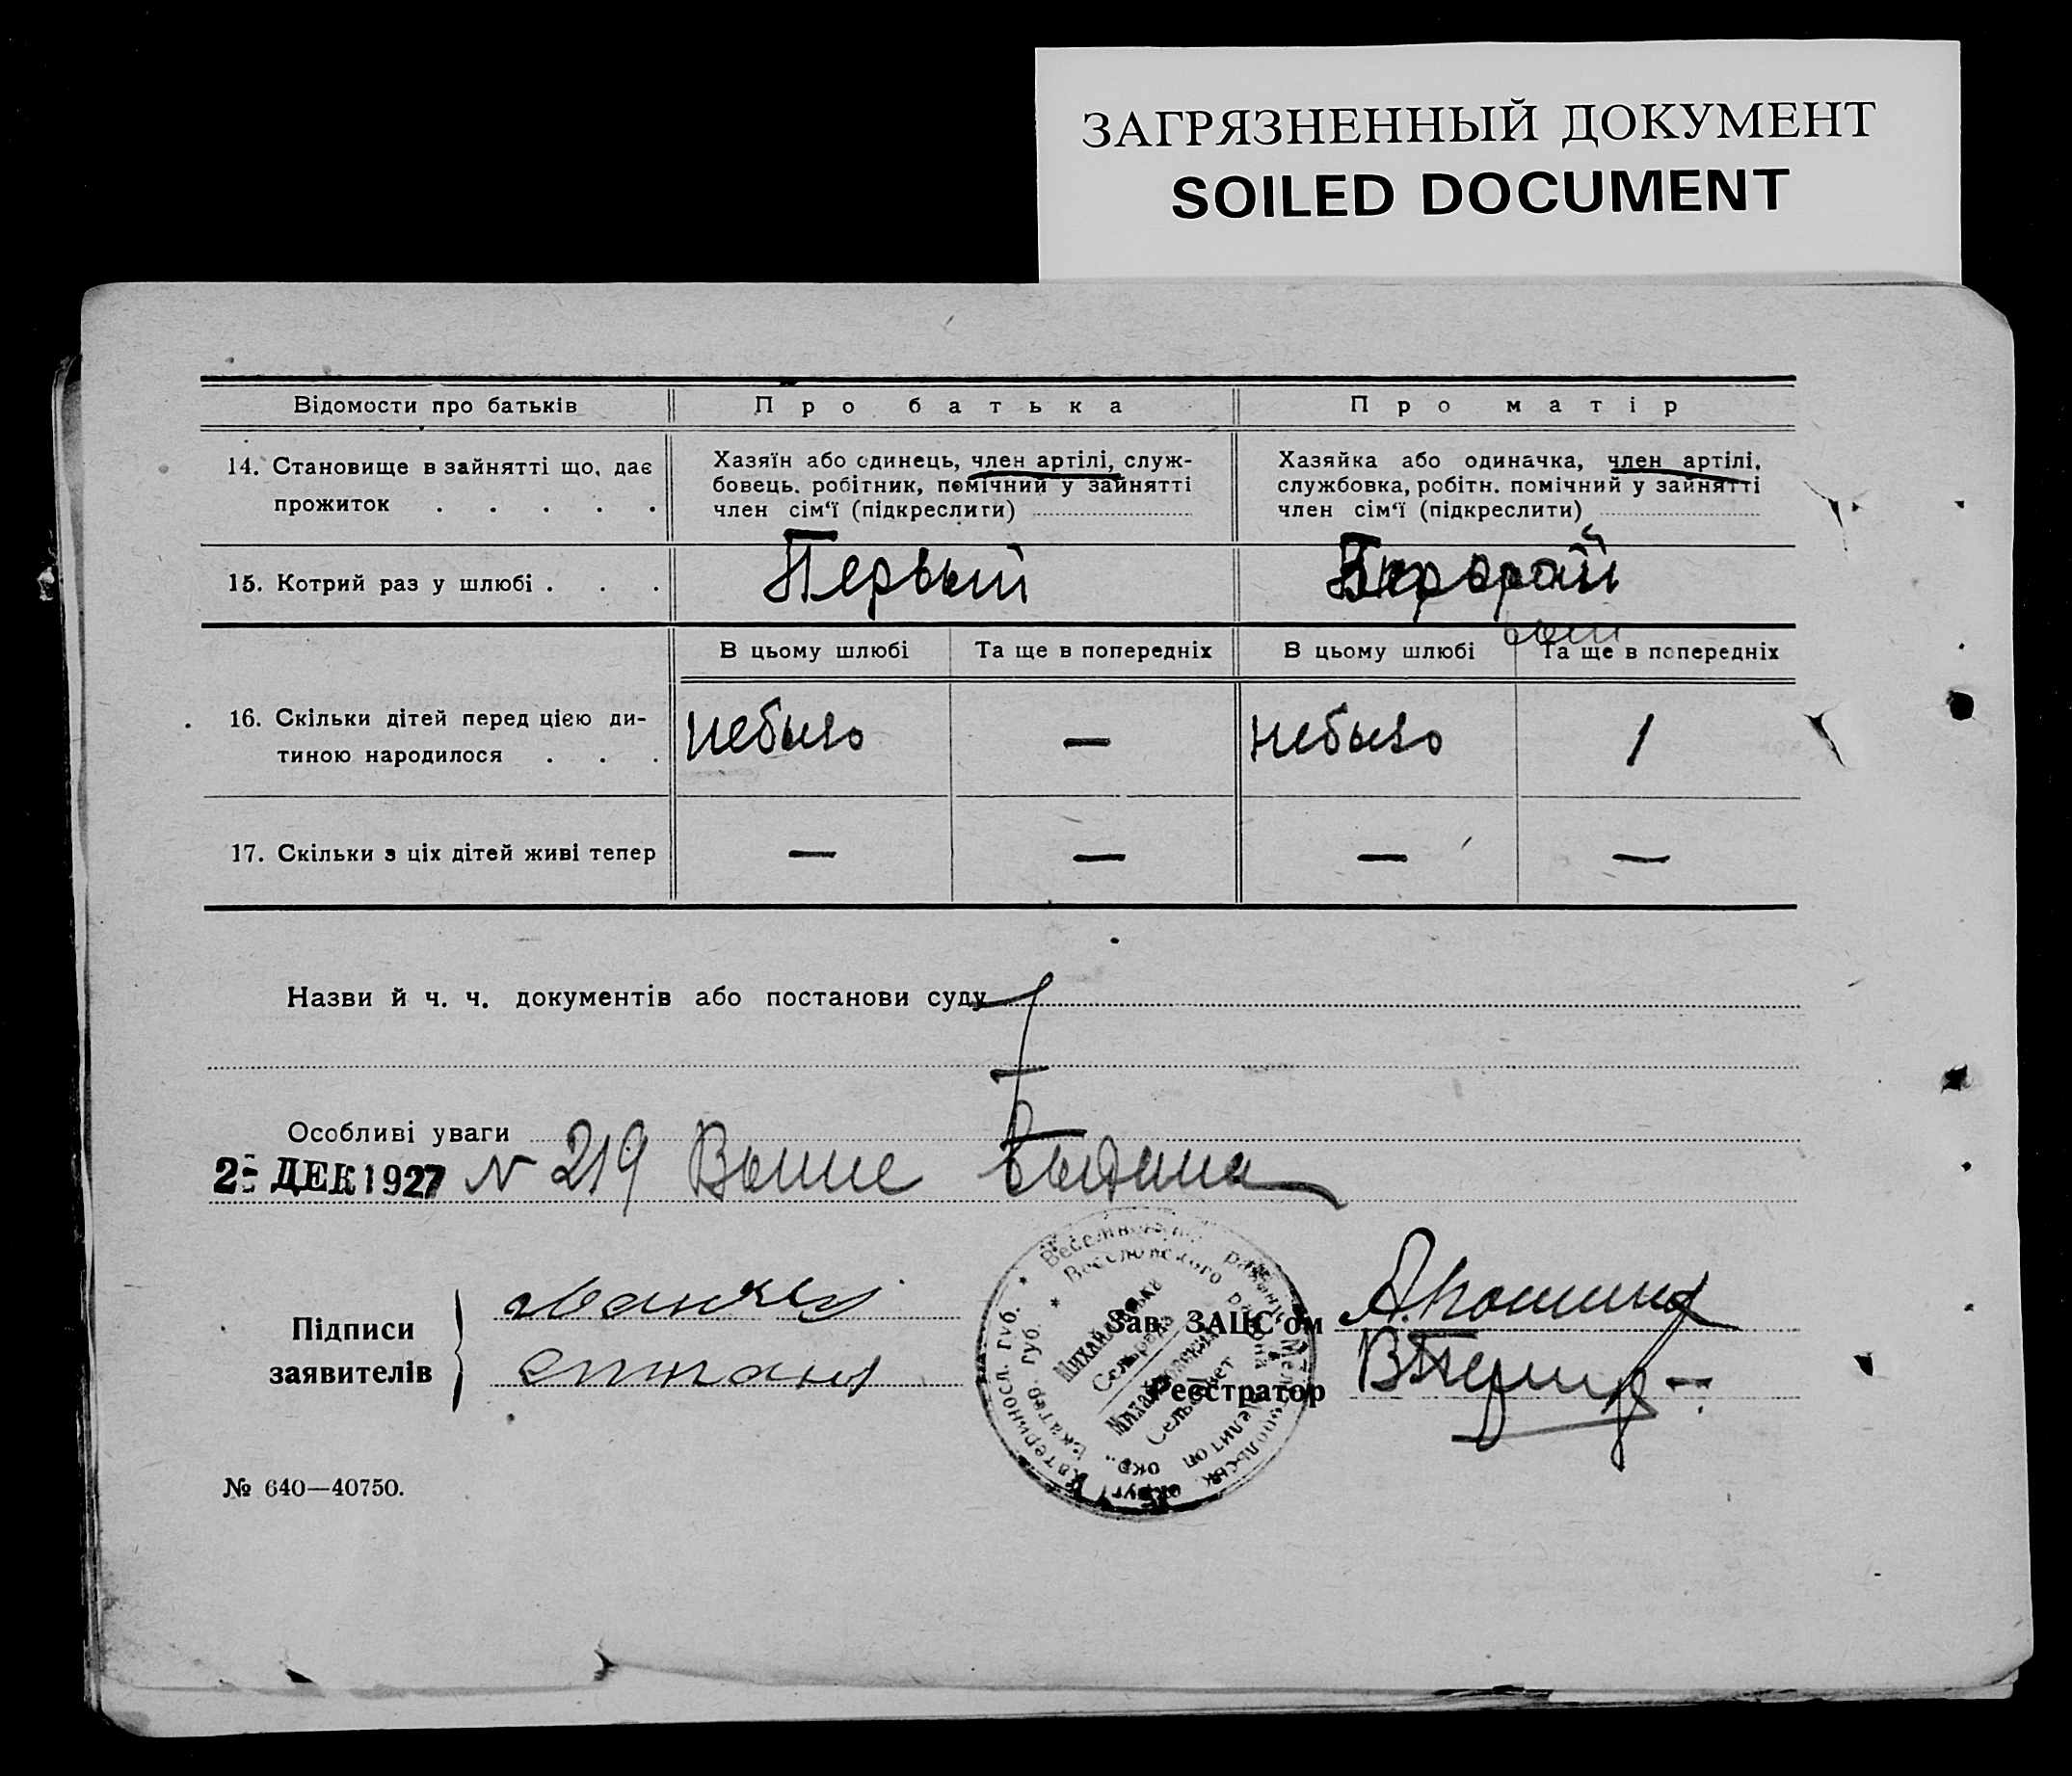 ЗАГРЯЗНЕННЫЙ ДОКУМЕНТ
SOILED DOCUMENT
Відомости про батьків
Про батька
Про матір
14. Становище в зайнятті що, дає
прожиток . . . . .
Хазяїн або одинець, член артілі, служ-
бовець. робітник, помічний у зайнятті
член сім‘ї (підкреслити)
Хазяйка або одиначка, член артілі,
службовка, робітн. помічний у зайнятті
член сім‘ї (підкреслити)
15. Котрий раз у шлюбі . . .
Первый
В цьому шлюбі
Та ще в попередніх
В цьому шлюбі
Та ще в попередніх
16. Скільки дітей перед цією ди-
тиною народилося . . .
небыло
—
небыло
1
17. Скільки з ціх дітей живі тепер
—
—
—
—
Назви й ч. ч. документів або постанови суду
Особливі уваги
2 ДЕК 1927 N 219
Підписи
заявителів
Зав. ЗАЦС‘ом
Реєстратор
Веселовского района
Мелитоп окр.
Екатер. губ.
Сельсовет
№ 640—40750.